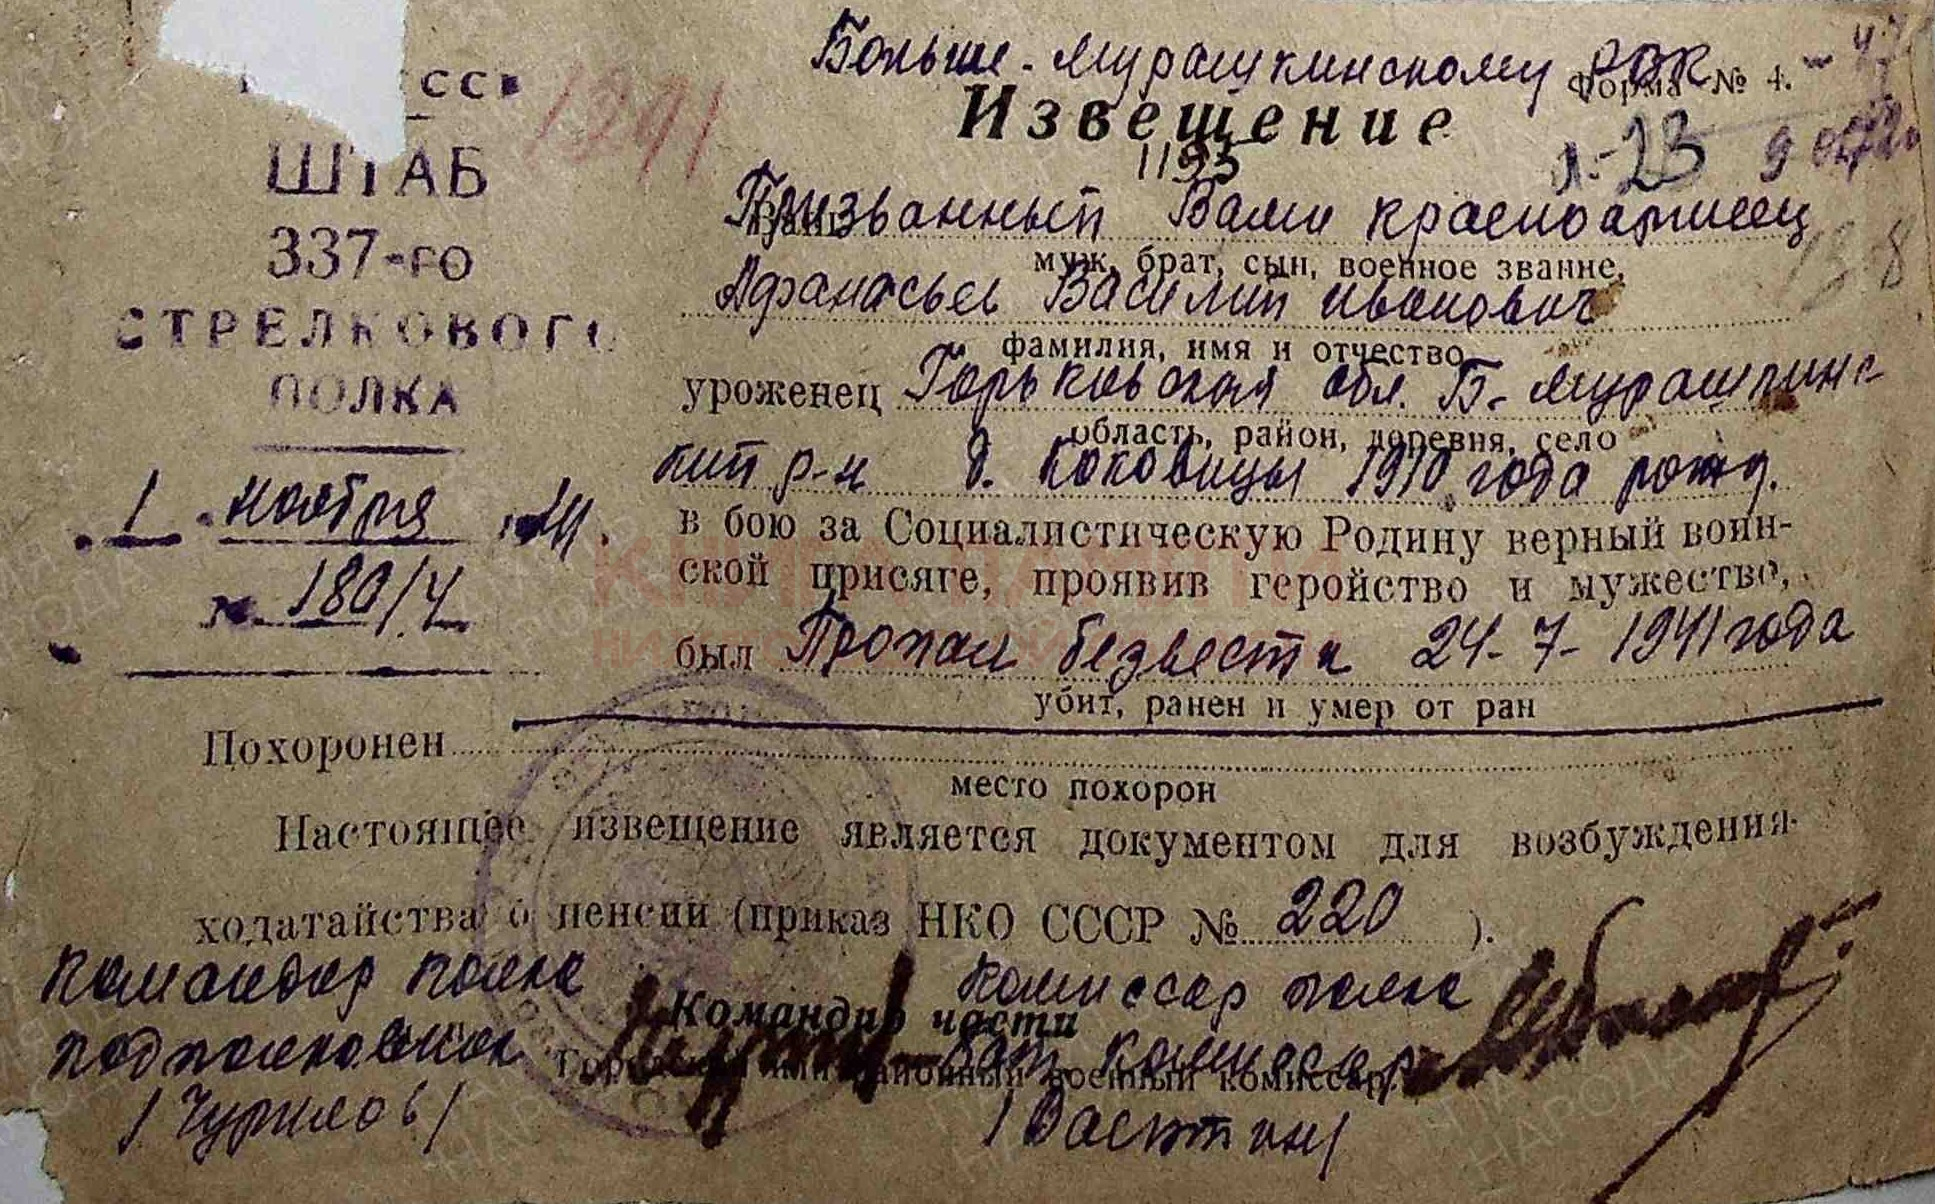 Больше-Мурашкинскому РВК
Форма № 4.
Извещение
1193
1291
л-23
ССР
ШТАБ
337-го
СТРЕЛКОВОГО
ПОЛКА
1 ноября 41.
№ 180/4
Призванный Вами красноармеец
муж, брат, сын, военное звание,
Афанасьев Василий Иванович
фамилия, имя и отчество
уроженец Горьковская обл. Б-Мурашкинс
область, район, деревня, село
кий р-н д. Коковицы 1910 года рожд.
в бою за Социалистическую Родину верный воин-
ской присяге, проявив геройство и мужество,
был Пропал безвести 24-7-1941 года
убит, ранен и умер от ран
Похоронен
место похорон
Настоящее извещение является документом для возбуждения
ходатайства о пенсии (приказ НКО СССР № 220 ).
Командир полка Комиссар полка
Командир части
подполковник бат. комиссар
районный военный комиссар
/Чурилов/